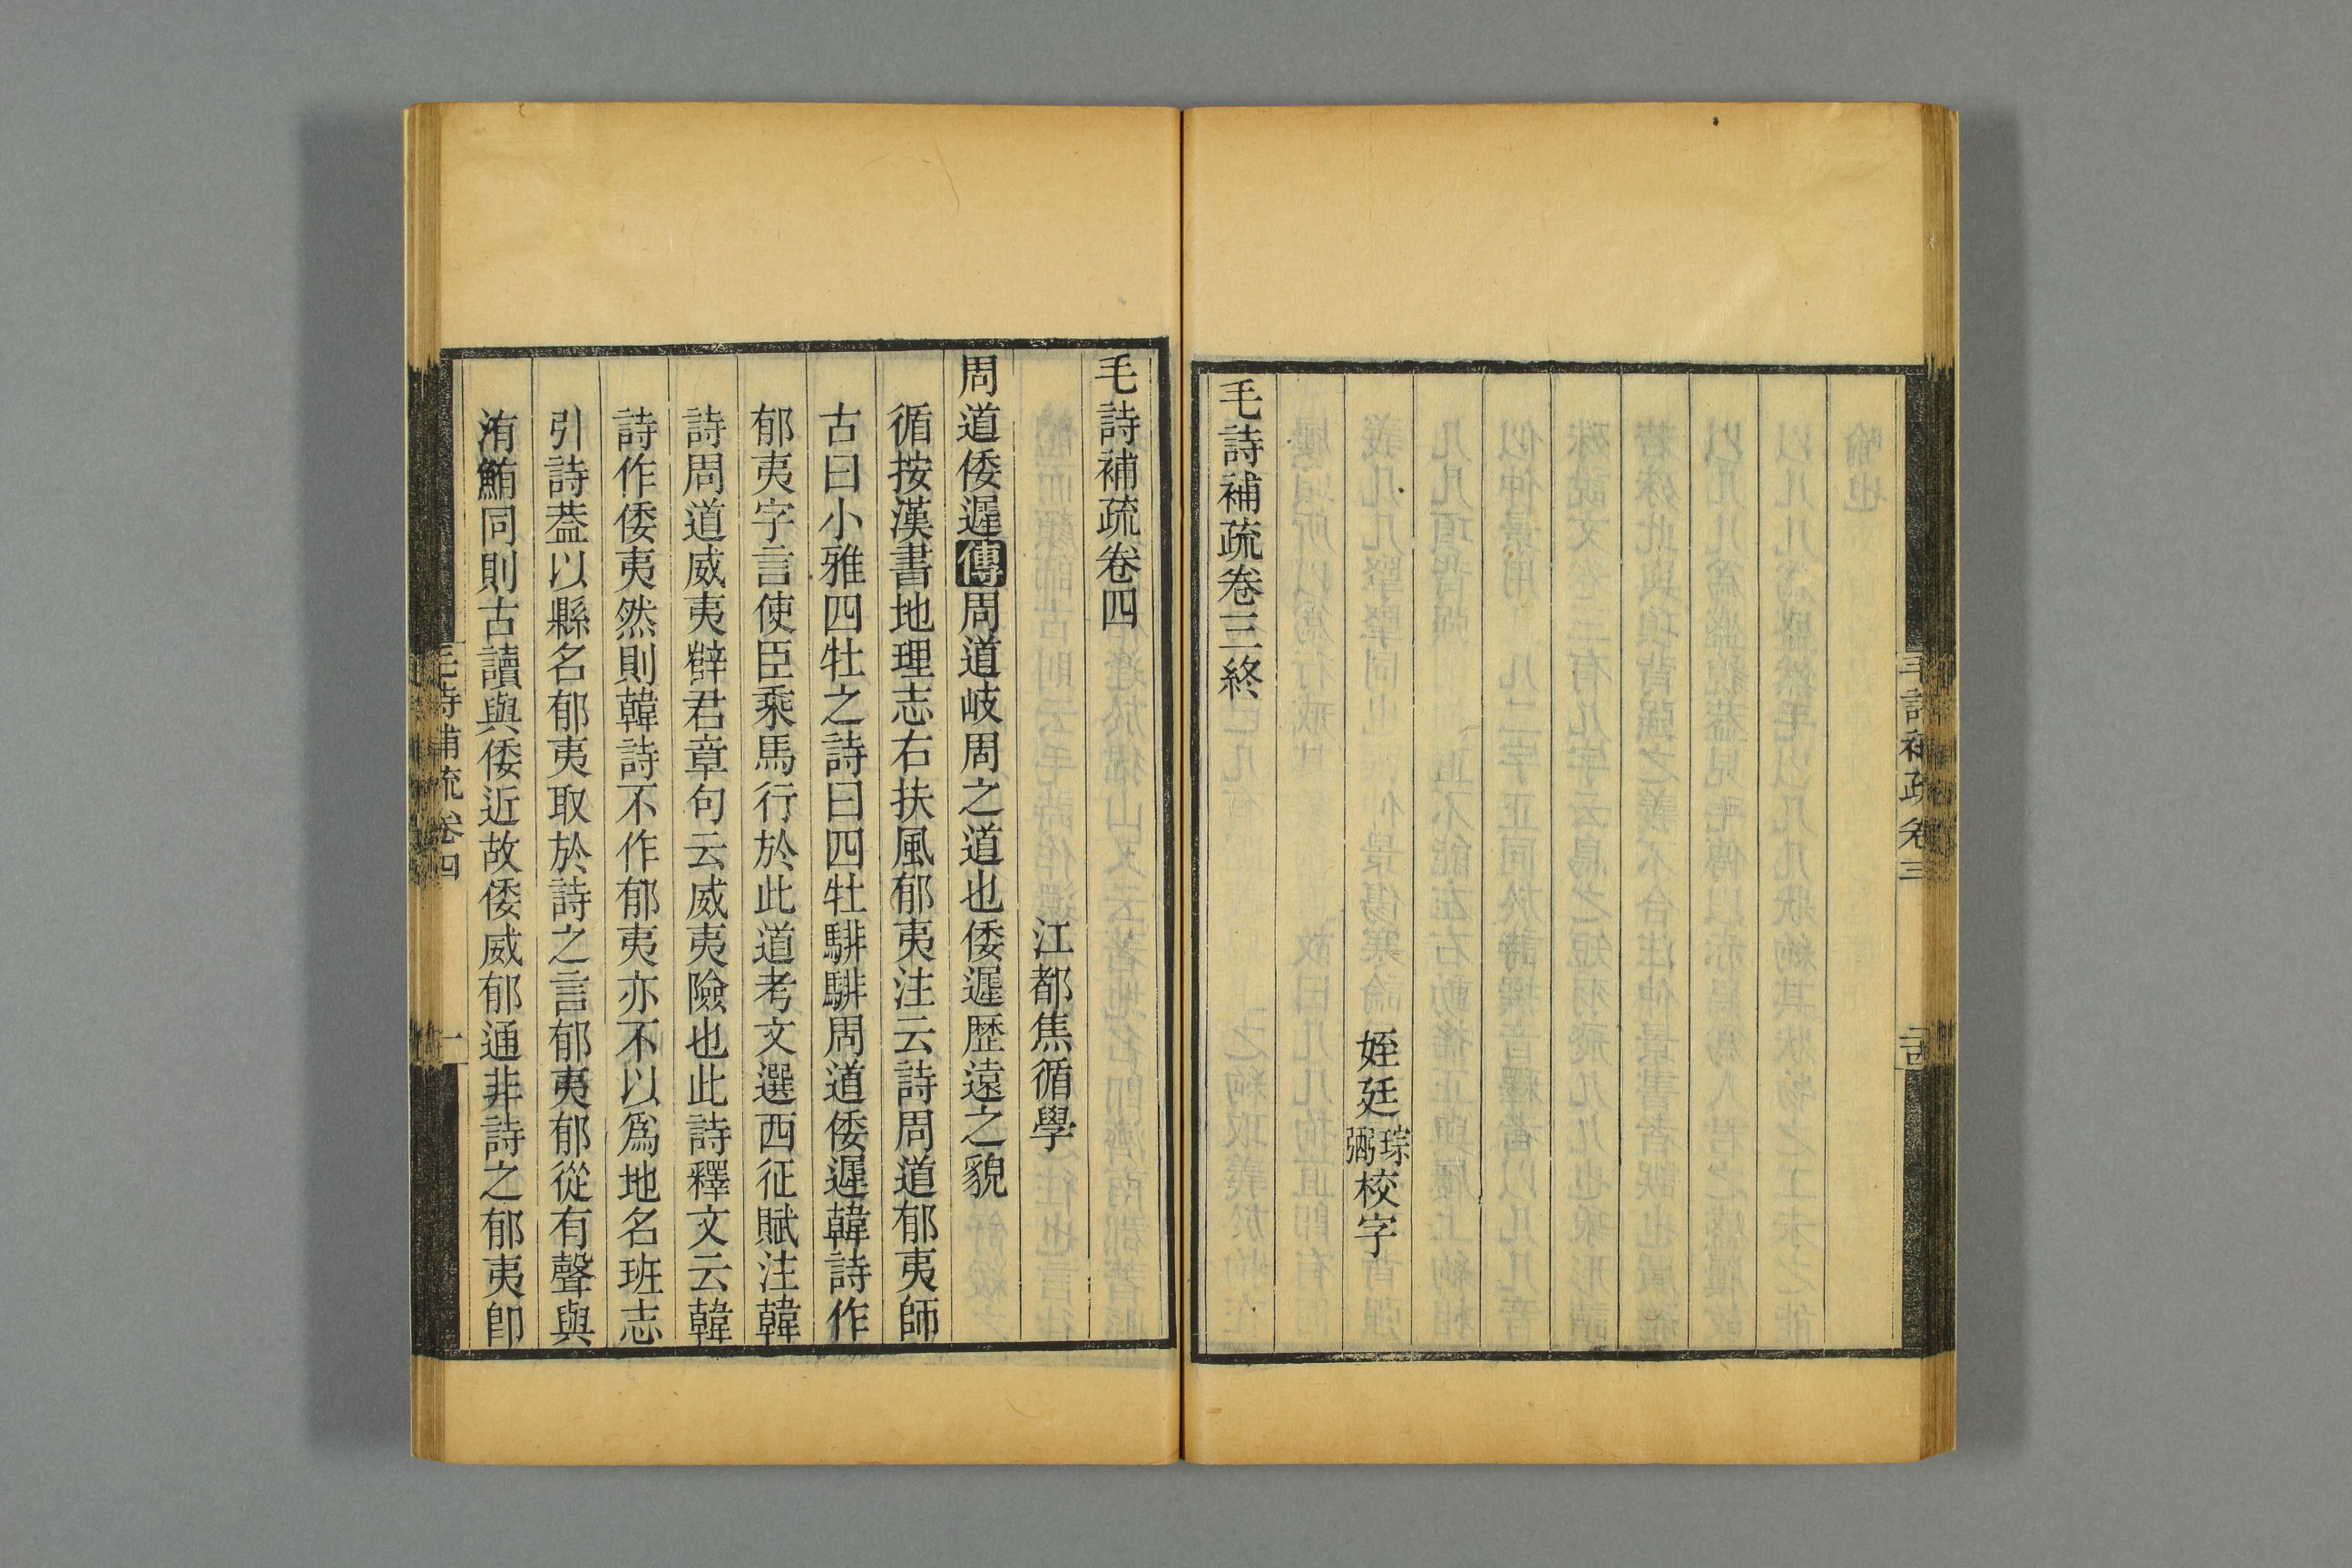 毛詩補疏卷三
二古
姪廷琮弼校字
毛詩補疏卷三終
毛詩補疏卷四
江都焦循學
周道倭遲傳周道岐周之道也倭遲歷遠之貌
循按漢書地理志右扶風郁夷注云詩周道郁夷師
古曰小雅四牡之詩曰四牡騑騑周道倭遲韓詩作
郁夷字言使臣乘馬行於此道考文選西征賦注韓
詩周道威夷薛君章句云威夷險也此詩釋文云韓
詩作倭夷然則韓詩不作郁夷亦不以爲地名班志
引詩葢以縣名郁夷取於詩之言郁夷郁從有聲與
洧鮪同則古讀與倭近故倭威郁通非詩之郁夷卽
毛詩補疏卷四
一